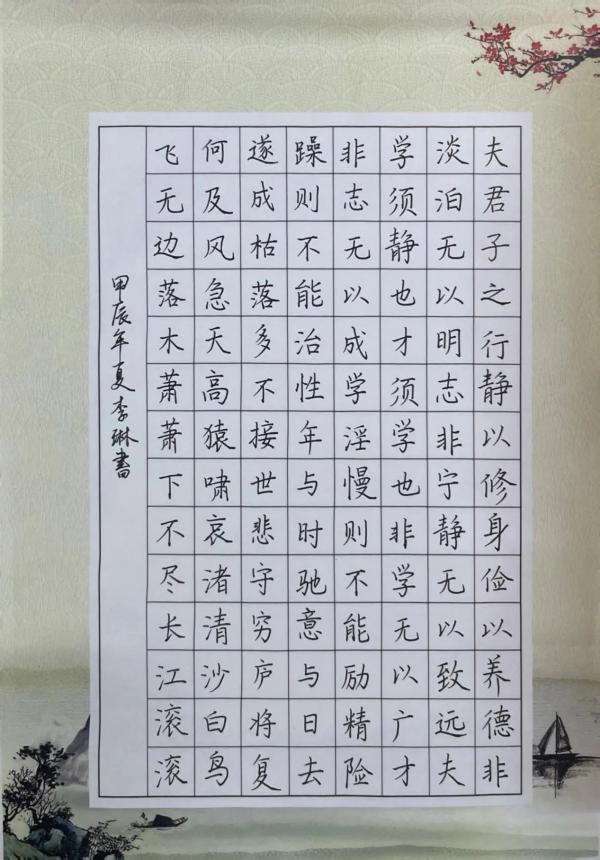 夫君子之行静以修身俭以养德非
淡泊无以明志非宁静无以致远夫
学须静也才须学也非学无以广才
非志无以成学淫慢则不能励精险
躁则不能治性年与时驰意与日去
遂成枯落多不接世悲守穷庐将复
何及风急天高猿啸哀渚清沙白鸟
飞无边落木萧萧下不尽长江滚滚
甲辰年夏李琳書